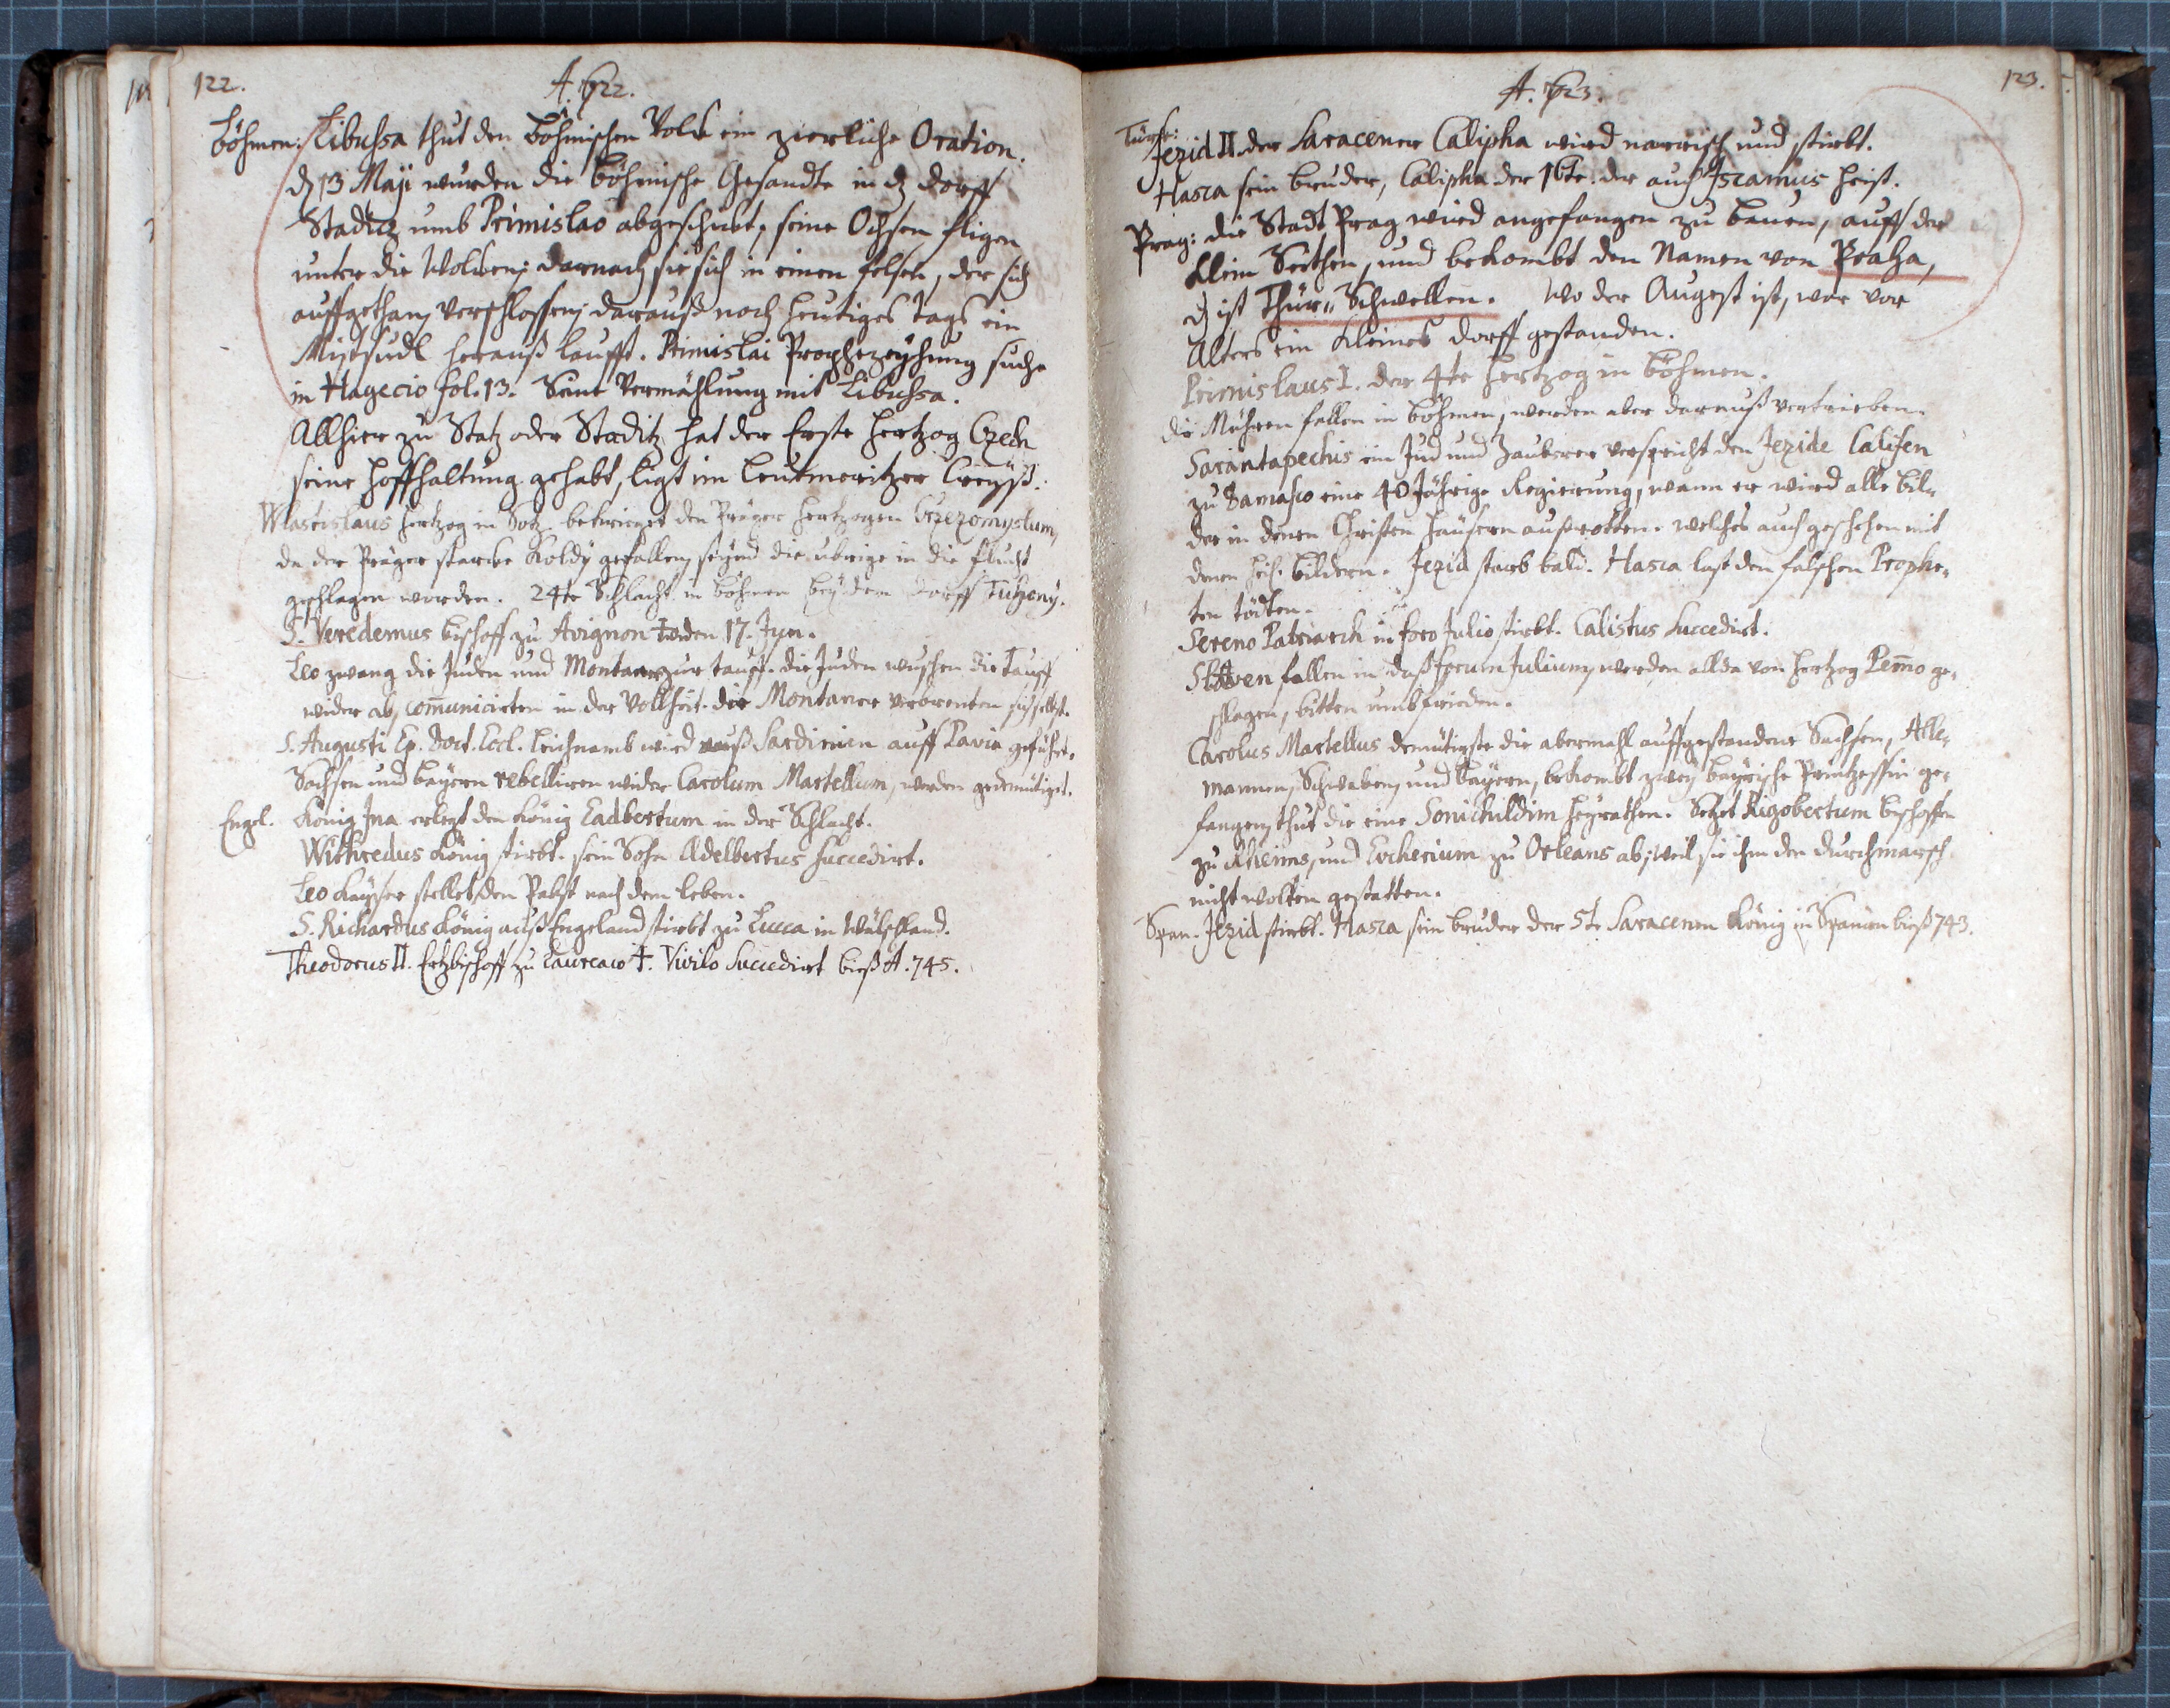 122.
A. 722.
Böhmen: Libussa thut den Böhmischen Volck ein zierliche Oration.
dz 13 Maji wurden die Böhmische Gesandte in dz Dorff
Staditz umb Primislao abgeschickt, seine Ochsen fligen
unter die Wolcken; darnach sie sich in einen felsen, der sich
auffgethan, verschlossen; darauß noch heutiges tags ein
Mistsudl herauß laufft. Primislai Prophezeyhung suche
in Hagecio fol. 13. Seine Vermählung mit Libussa.
Allhier zu Statz oder Staditz hat der Erste Hertzog Czech
seine Hoffhaltung gehabt, ligt im Leutmeritzer Creyß.
Wlastislaus Hertzog in Sotz bekrieget den Prager Hertzogen Crzezomyslum,
da der Prager starcke Koldy gefallen, seynd die ubrige in die flucht
geschlagen worden. 24te Schlacht in Böhmen bey dem Dorff Tuhzeny.
S. Veredemus Bischoff zu Avignon † den 17. Jun.
Leo zwang die Juden und Montaner zur tauff. die Juden wuschen die Tauff
wider ab, com̄unicirten in der Vollheit. die Montaner verbrenten sich selbst.
S. Augusti Ep. Doct. Eccl. Leichnamb wird auß Sardinien auff Pavia geführt.
Sachsen und Bayern rebelliren wider Carolum Martellum, werden gedemütiget.
Engel. König Ina erlegt den König Eadbertum in der Schlacht.
Withredus König stirbt. sein Sohn Adelbertus succedirt.
Leo Kayser stellet den Pabst nach dem leben.
S. Richardus König auß Engeland stirbt zu Lucca in Wälschland.
Theodorus II. Ertzbischoff zu Laureaco †. Vivilo Succedirt bieß A. 745.
123.
A. 723.
Türck: Jezid II. der Saracener Calipha wird narrisch und stirbt.
Hasca sein bruder, Calipha der 16te. der auch Iscamus heist.
Prag: die Stadt Prag wird angefangen zu bauen, auff der
Klein Seithen, und bekombt den Namen von Praha,
dz ist Thür-Schwellen. Wo der Augest ist, war vor
Alters ein kleines Dorff gestanden.
Primislaus I. der 4te Hertzog in Böhmen.
die Mähren fallen in Böhmen, werden aber darauß vertrieben.
Sarantapechis ein Jud und Zauberer verspricht den Jezide Califen
zu Damasco eine 40 Jährige Regierung, wann er wird alle bil-
der in denen Christen häusern außrotten. welches auch geschehen mit
denen heil. bildern. Jezid starb bald. Hasca last den falschen Prophe-
ten tödten.
Sereno Patriarch in foro Julio stirbt. Calistus Succedirt.
Slaven fallen in daß forum Julium, werden allda von Hertzog Pem̄o ge-
schlagen, bitten umb frieden.
Carolus Martellus demütigste die abermahl auffgestandene Sachsen, Alle-
mannen, Schwaben, und Bayern, bekombt zwey bayrische Printzessin ge-
fangen, thut die eine Sonichildim heyrathen. Setzt Rigobertum Bischoffen
zu Rheims, und Eucherium zu Orleans ab; weil sie ihm den durchmarsch
nicht wolten gestatten.
Span. Jezid stirbt. Hasca sein bruder der 5te Saracenen König in Spanien bieß 743.